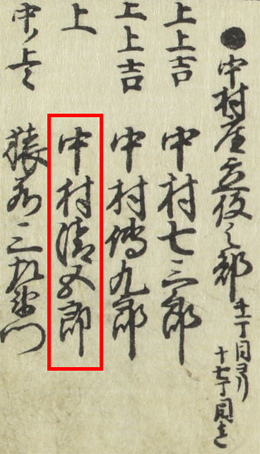 ●中村座立役之部 十一丁目ヨリ
十七丁目迄
上上吉 中村七三郎
上上吉 中村傳九郎
上 中村清五郎
中ノ上々 猿若三左衛門